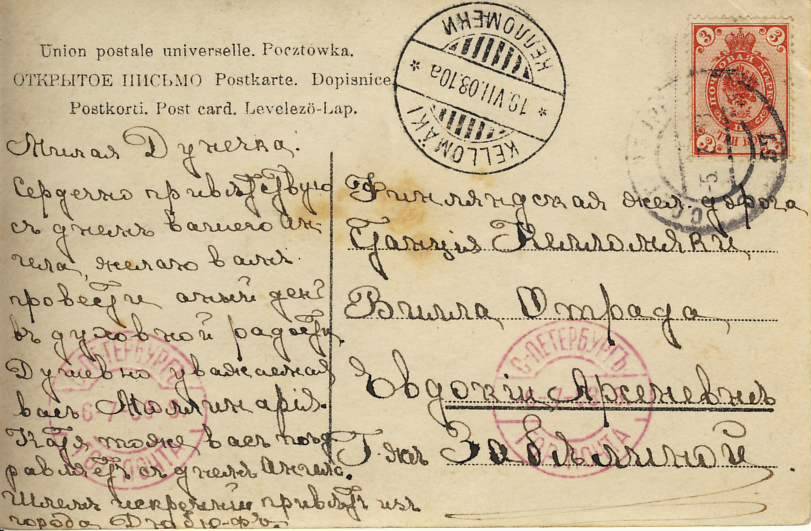 Union postale universelle. Pocztówka.
ОТКРЫТОЕ ПИСЬМО Postkarte. Dopisnice
Postkorti. Post card. Levelező-Lap.
КЕЛЛОМЯКИ
19.VII.08.10a
KELLOMÄKI
3 3
ПОЧТОВАЯ МАРКА
Милая Дунечка.
Сердечно привѣтствую
съ днемъ вашего Ан
гела, желаю вамъ
провести оный день
въ духовной радости,
Душевно уважаемая
васъ
Катя тоже васъ позд
равляетъ съ днемъ Ангела.
Шлемъ искренній привѣтъ изъ
города
Финляндская жел. дорога
Станція Келломяки
Вилла Отрада
Евдокіи Арсеневнѣ
Г-жѣ Забѣлиной
С-ПЕТЕРБУРГЪ
ПОЧТА
С-ПЕТЕРБУРГЪ
ПОЧТА